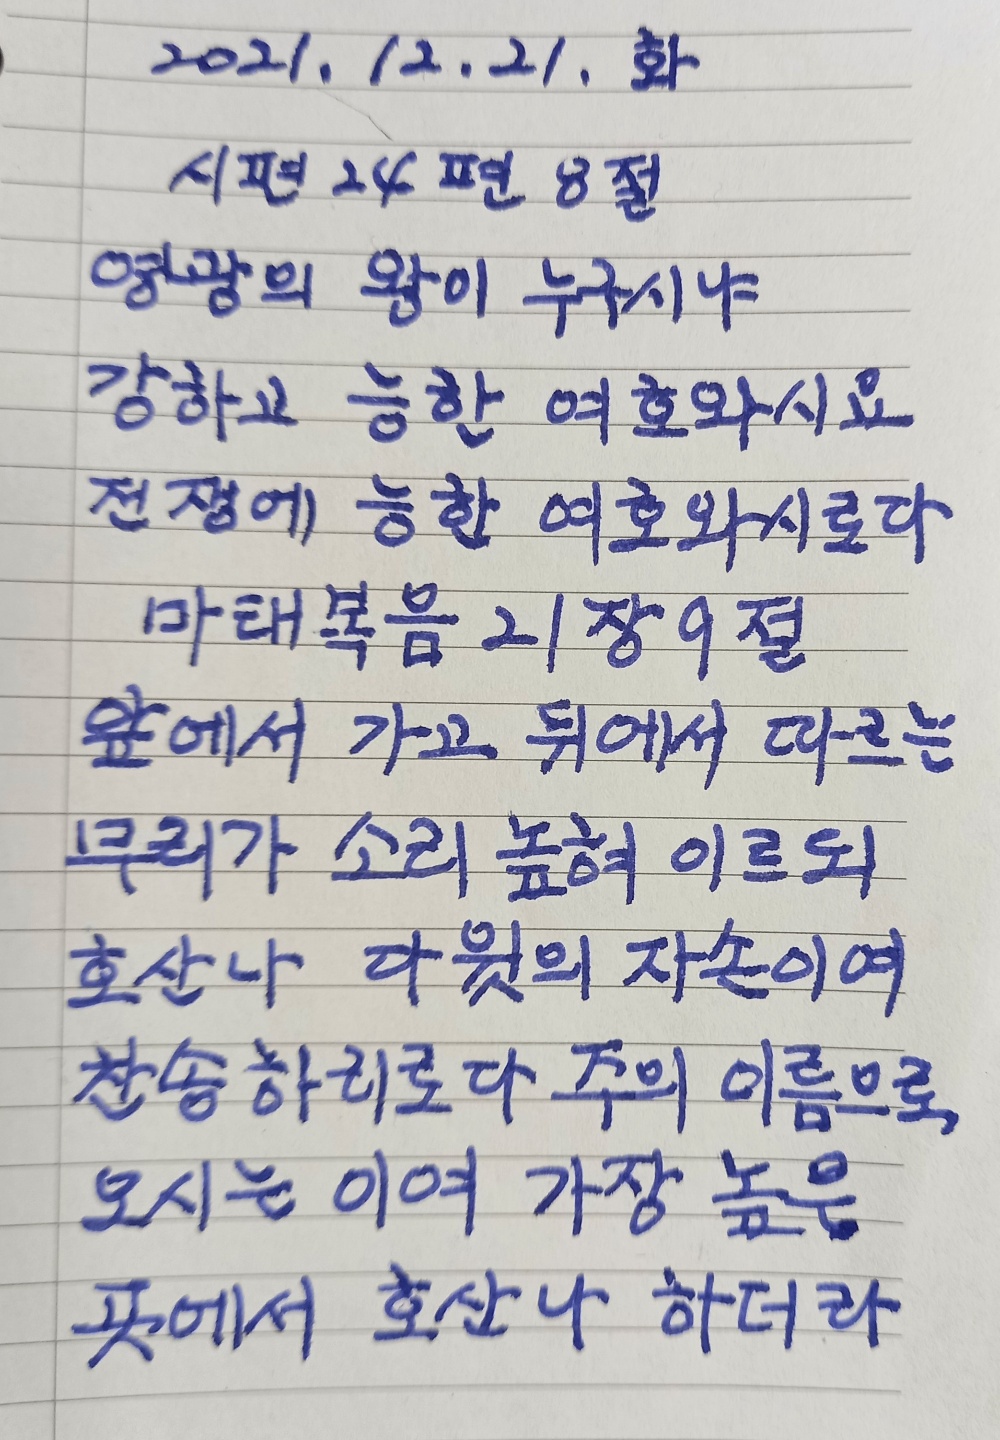 2021. 12. 21. 화
시편 24편 8절
영광의 왕이 누구시냐
강하고 능한 여호와시요
전쟁에 능한 여호와시로다
마태복음 21장 9절
앞에서 가고 뒤에서 따르는
무리가 소리 높혀 이르되
호산나 다윗의 자손이여
찬송하리로다 주의 이름으로,
오시는 이여 가장 높은
곳에서 호산나 하더라